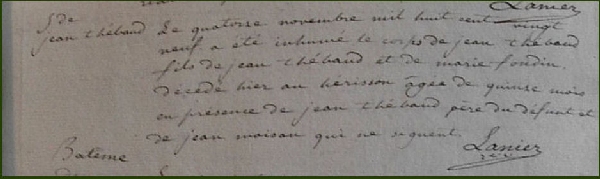 Lanier
S. de
jean thébaud
Le quatorse novembre mil huit cent vingt
neuf a été inhumé le corps de jean thébaud
fils de jean thébaud et de marie fondin,
décédé hier au hérisson âgée de quinse mois
en présence de jean thébaud père du défunt et
de jean moisan qui ne signent.
Lanier
Batême